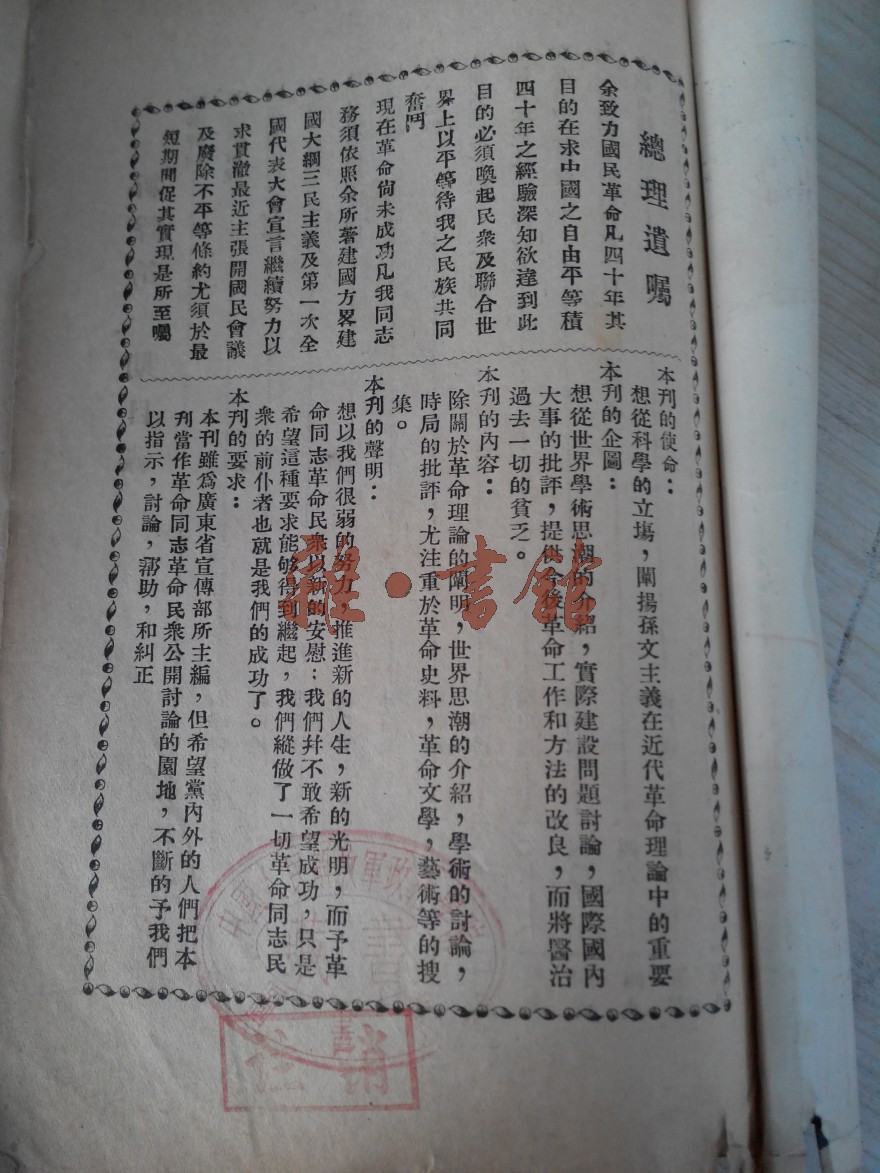 總理遺囑
余致力國民革命凡四十年其
目的在求中國之自由平等積
四十年之經驗深知欲達到此
目的必須喚起民衆及聯合世
界上以平等待我之民族共同
奮鬥
現在革命尙未成功凡我同志
務須依照余所著建國方畧建
國大綱三民主義及第一次全
國代表大會宣言繼續努力以
求貫澈最近主張開國民會議
及廢除不平等條約尤須於最
短期間促其實現是所至囑
本刊的使命：
想從科學的立塲，闡揚孫文主義在近代革命理論中的重要
本刊的企圖：
想從世界學術思潮的介紹，實際建設問題討論，國際國內
大事的批評，提供今後革命工作和方法的改良，而將醫治
過去一切的貧乏。
本刊的內容：
除關於革命理論的闡明，世界思潮的介紹，學術的討論，
時局的批評，尤注重於革命史料，革命文學，藝術等的搜
集。
本刊的聲明：
想以我們很弱的努力，推進新的人生，新的光明，而予革
命同志革命民衆以新的安慰；我們幷不敢希望成功，只是
希望這種要求能够得到繼起，我們縱做了一切革命同志民
衆的前仆者也就是我們的成功了。
本刊的要求：
本刊雖爲廣東省宣傳部所主編，但希望黨內外的人們把本
刊當作革命同志革命民衆公開討論的園地，不斷的予我們
以指示，討論，幫助，和糾正
雜·書館